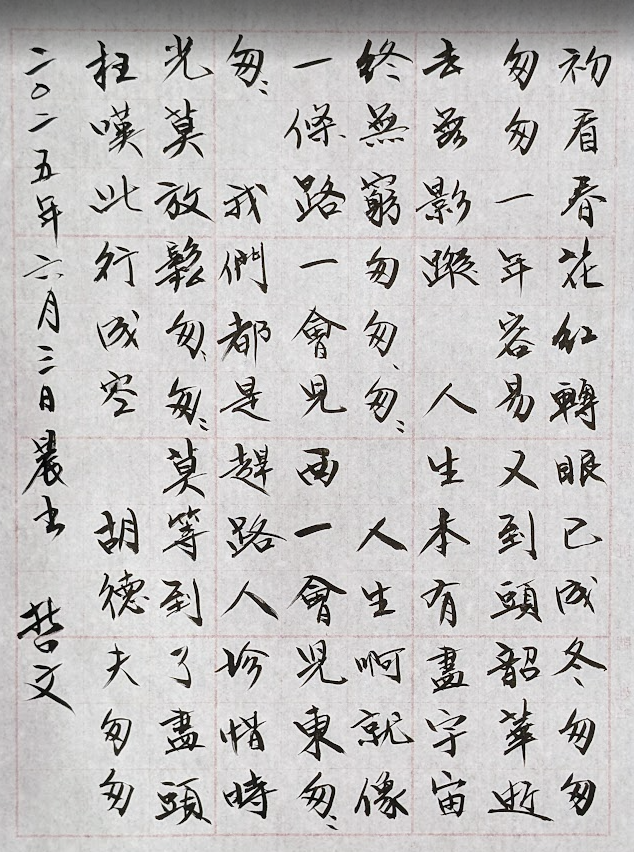 初看春花紅轉眼已成冬匆匆
匆匆一年容易又到頭韶華逝
去無影蹤 人生本有盡宇宙
終無窮匆匆、匆〻 人生啊就像
一條路一會兒西一會兒東匆〻
匆〻 我們都是趕路人珍惜時
光莫放鬆匆、匆〻莫等到了盡頭
枉嘆此行成空 胡德夫匆匆
二〇二五年六月三日晨書 哲文